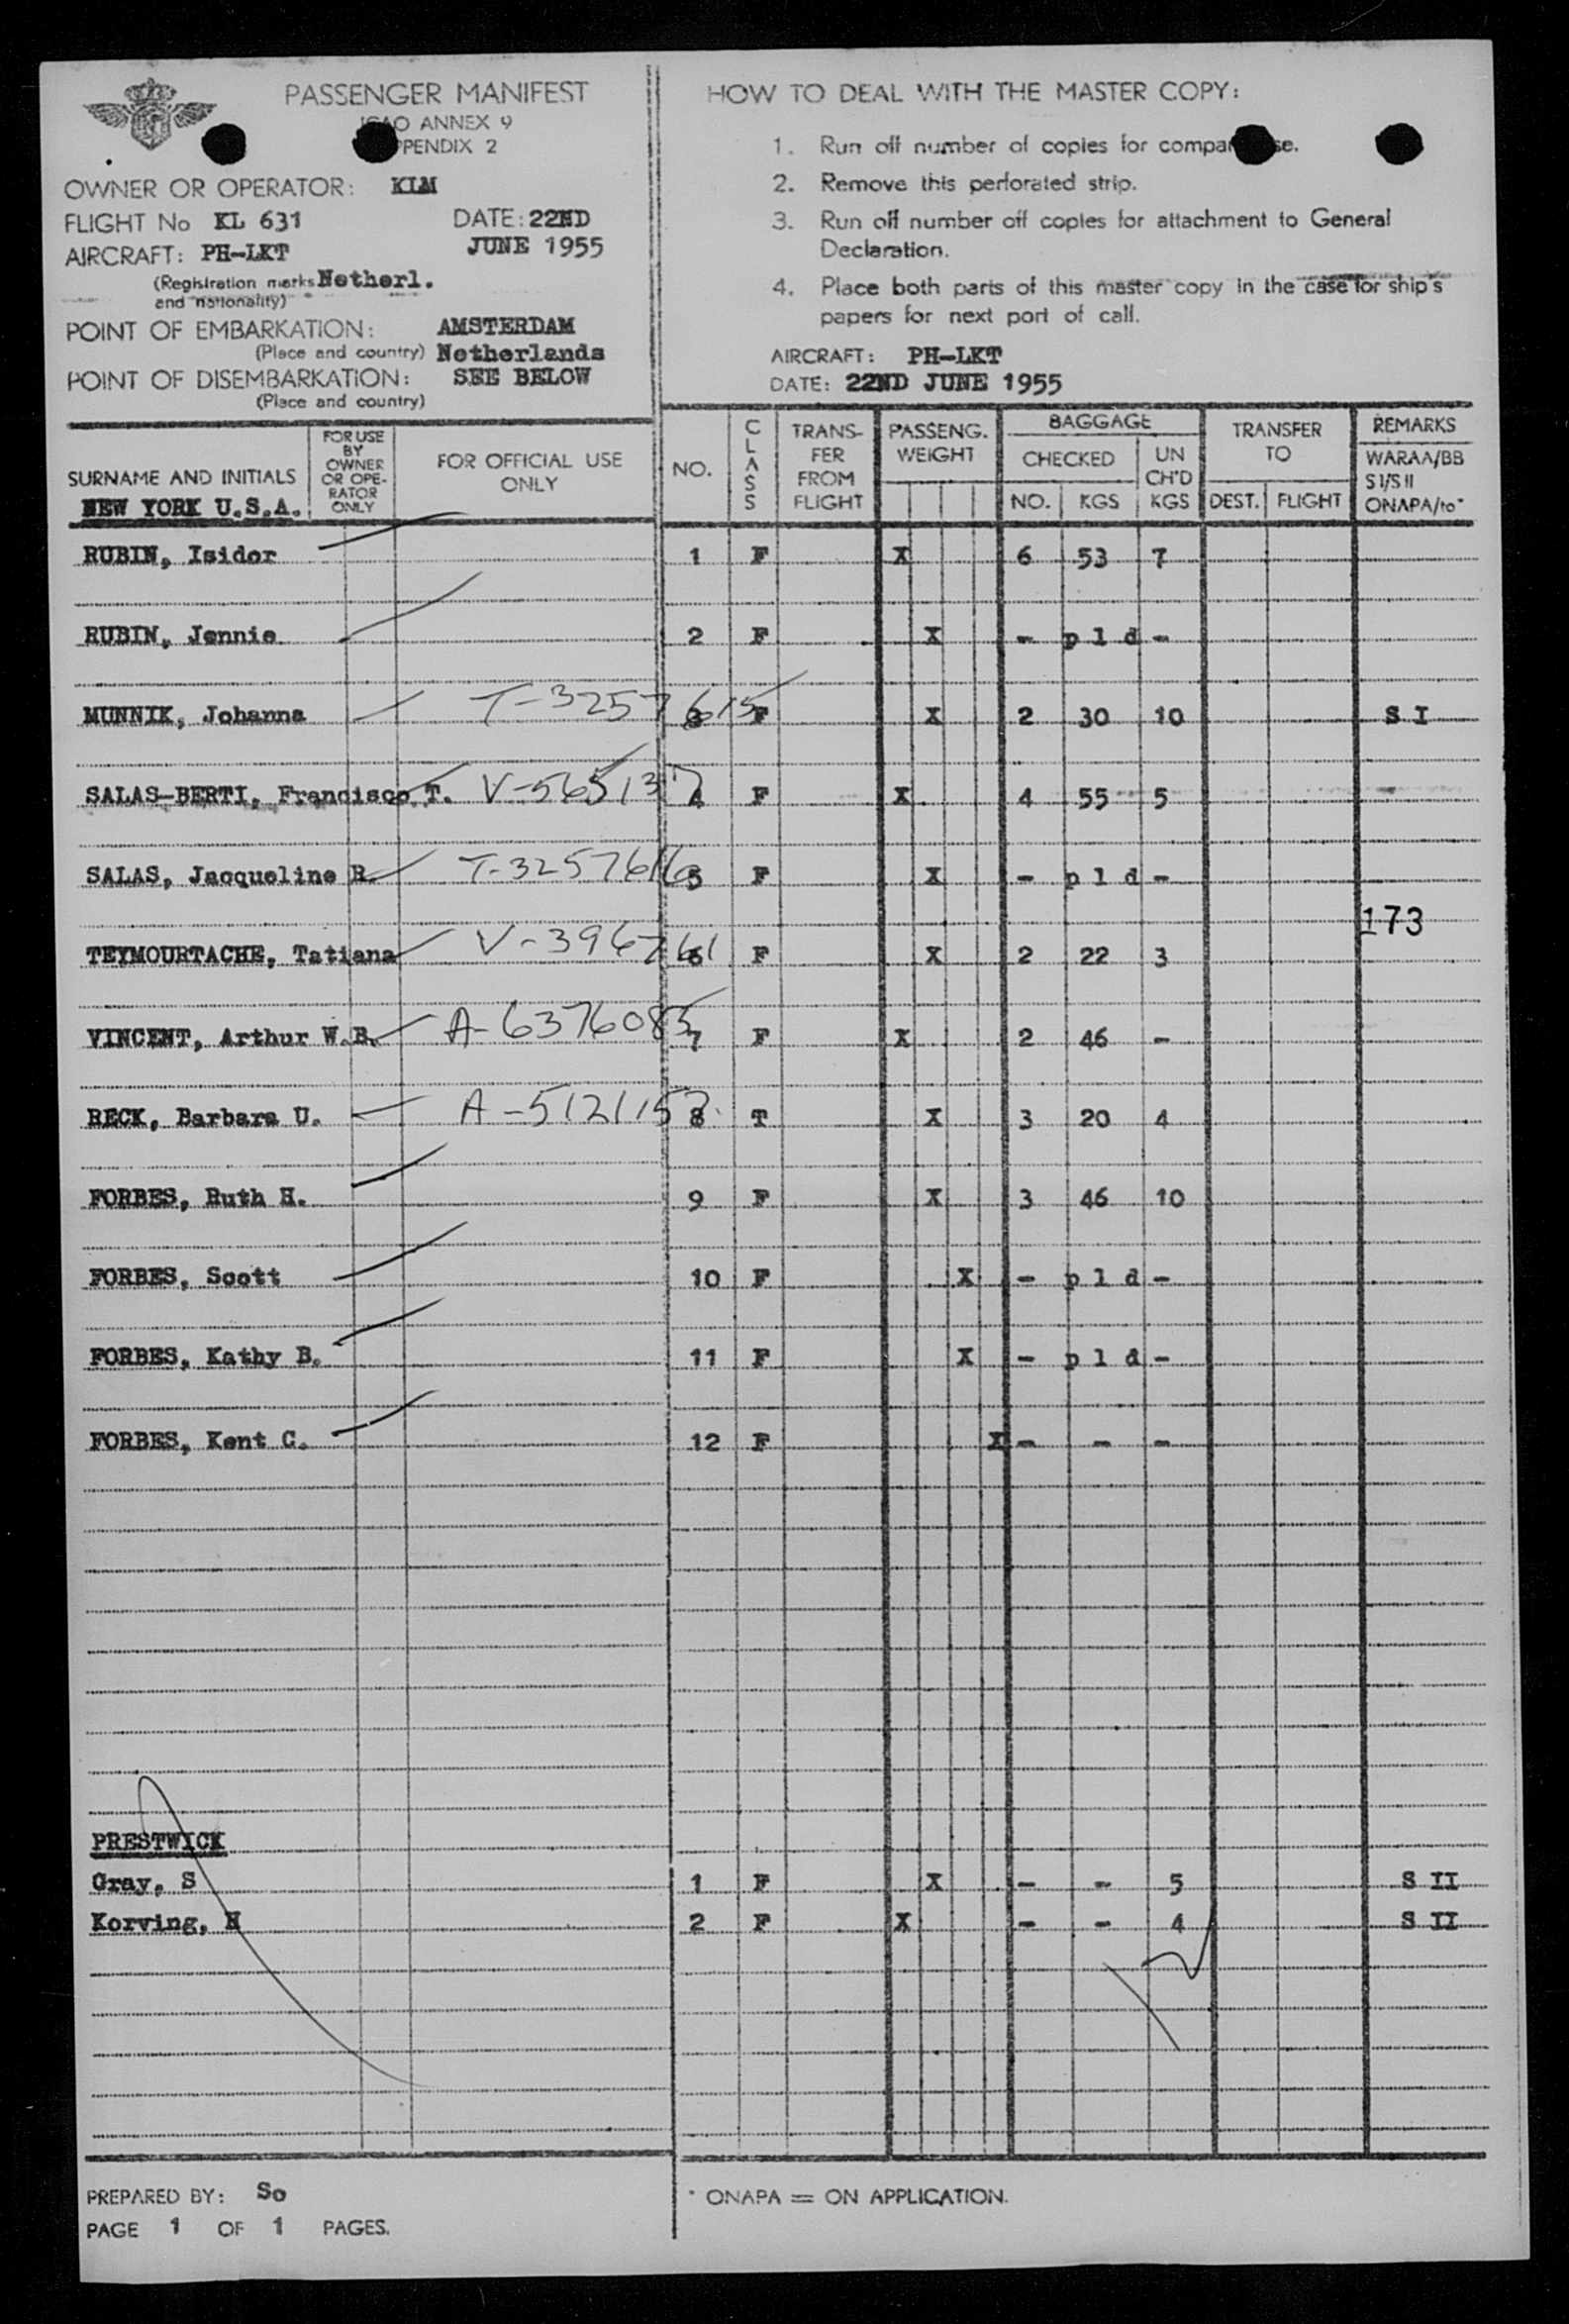 PASSENGER MANIFEST
ICAO ANNEX 9
APPENDIX 2
OWNER OR OPERATOR: KLM
FLIGHT No KL 631 DATE: 22ND
AIRCRAFT: PH-LKT JUNE 1955
(Registration marks Netherl.
and nationality)
POINT OF EMBARKATION: AMSTERDAM
(Place and country) Netherlands
POINT OF DISEMBARKATION: SEE BELOW
(Place and country)
HOW TO DEAL WITH THE MASTER COPY:
1. Run off number of copies for
2. Remove this perforated strip.
3. Run off number off copies for attachment to General
Declaration.
4. Place both parts of this master copy in the case for ship's
papers for next port of call.
AIRCRAFT: PH-LKT
DATE: 22ND JUNE 1955
SURNAME AND INITIALS FOR USE BY OWNER OR OPE-RATOR ONLY FOR OFFICIAL USE ONLY NO. CLASS TRANS-FER FROM FLIGHT PASSENG. WEIGHT BAGGAGE CHECKED NO. KGS UN CH'D KGS TRANSFER TO DEST. FLIGHT REMARKS WARAA/BB S I/S II ONAPA/to*
NEW YORK U.S.A.
RUBIN, Isidor 1 F X 6 53 7
RUBIN, Jennie 2 F X - pld -
MUNNIK, Johanna T-3257615 3 F X 2 30 10 S I
SALAS-BERTI, Francisco T. V-565137 4 F X 4 55 5
SALAS, Jacqueline R. T-3257616 5 F X - pld -
173
TEYMOURTACHE, Tatiana V-3967661 6 F X 2 22 3
VINCENT, Arthur W.B. A-6376085 7 F X 2 46 -
RECK, Barbara U. A-5121152 8 T X 3 20 4
FORBES, Ruth H. 9 F X 3 46 10
FORBES, Scott 10 F X - pld -
FORBES, Kathy B. 11 F X - pld -
FORBES, Kent C. 12 F X - - -
PRESTWICK
Gray, S 1 F X - - 5 S II
Korving, H 2 F X - - 4 S II
PREPARED BY: So
PAGE 1 OF 1 PAGES.
* ONAPA = ON APPLICATION.